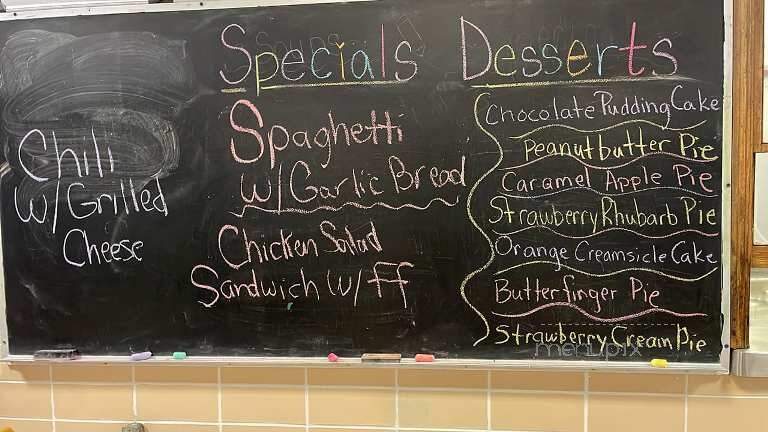 Chili
w/Grilled
Cheese
Specials
Spaghetti
w/Garlic Bread
Chicken Salad
Sandwich w/ff
Desserts
Chocolate Pudding Cake
Peanutbutter Pie
Caramel Apple Pie
Strawberry Rhubarb Pie
Orange Creamsicle Cake
Butterfinger Pie
Strawberry Cream Pie
menupix